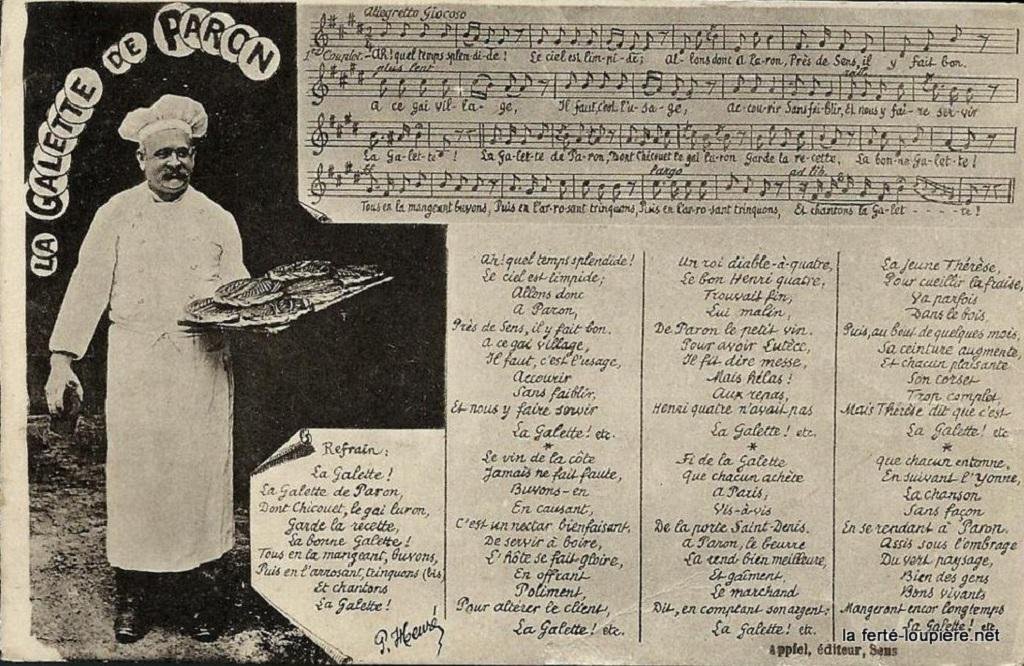 LA GALETTE DE PARON
Allegretto Giocoso
1er Couplet - AR! quel temps splen-di-de! Le ciel est lim-pi-de; Al-lons donc a Pa-ron, Près de Sens, il y fait bon.
plus lent
rall.
A ce gai vil-la-ge, Il faut, c'est l'u-sa-ge, Ac-cou-rir Sans fai-blir, Et nous y fai-re ser-vir
La Ga-let-te! La Ga-let-te de Pa-ron, Dont Chicouet le gai lu-ron Garde la re-cette, La bon-ne Ga-let-te!
Largo
ad lib.
Tous en la mangeant buvons, Puis en l'ar-ro-sant trinquons, Puis en l'ar-ro-sant trinquons, Et chantons la Ga-let - - - - te!
Refrain:
La Galette!
La Galette de Paron,
Dont Chicouet, le gai luron,
Garde la recette,
La bonne Galette!
Tous en la mangeant, buvons,
Puis en l'arrosant, trinquons (bis)
Et chantons
La Galette!
P. Heusé
Ah! quel temps splendide!
Le ciel est limpide;
Allons donc
A Paron,
Près de Sens, il y fait bon.
A ce gai village,
Il faut, c'est l'usage,
Accourir
Sans faiblir,
Et nous y faire servir
La Galette! etc.
*
Le vin de la côte
Jamais ne fait faute,
Buvons-en
En causant,
C'est un nectar bienfaisant.
De servir à boire,
L'hôte se fait gloire,
En offrant
Poliment,
Pour altérer le client,
La Galette! etc.
Un roi diable-à-quatre,
Le bon Henri quatre,
Trouvait fin,
Lui malin,
De Paron le petit vin.
Pour avoir Lutèce,
Il fit dire messe,
Mais hélas!
Aux repas,
Henri quatre n'avait pas
La Galette! etc.
*
Fi de la Galette
que chacun achète
A Paris,
Vis-à-vis
De la porte Saint-Denis.
A Paron, le beurre
La rend bien meilleure,
Et gaîment,
Le marchand
Dit, en comptant son argent:
La Galette! etc.
La jeune Thérèse,
Pour cueillir la fraise,
Va parfois
Dans le bois,
Puis, au bout de quelques mois,
Sa ceinture augmente,
Et chacun plaisante
Son corset
Trop complet,
Mais Thérèse dit que c'est
La Galette! etc
*
que chacun entonne,
En suivant l'Yonne,
La chanson
Sans façon
En se rendant à Paron.
Assis sous l'ombrage
Du vert paysage,
Bien des gens
Bons vivants
Mangeront encor longtemps
La Galette! etc.
la ferté-loupière.net
Appfel, éditeur, Sens